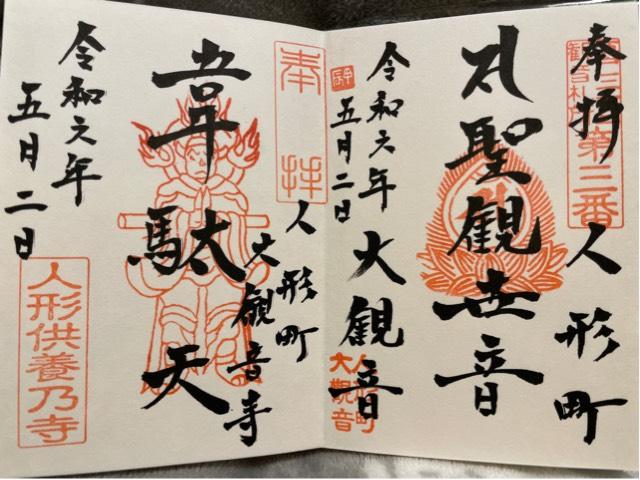 奉拝
第三番
人形町
聖観世音
令和元年
五月二日
大観音
人形町
大観音
奉拝
人形町
大観音寺
韋駄天
令和元年
五月二日
人形供養乃寺